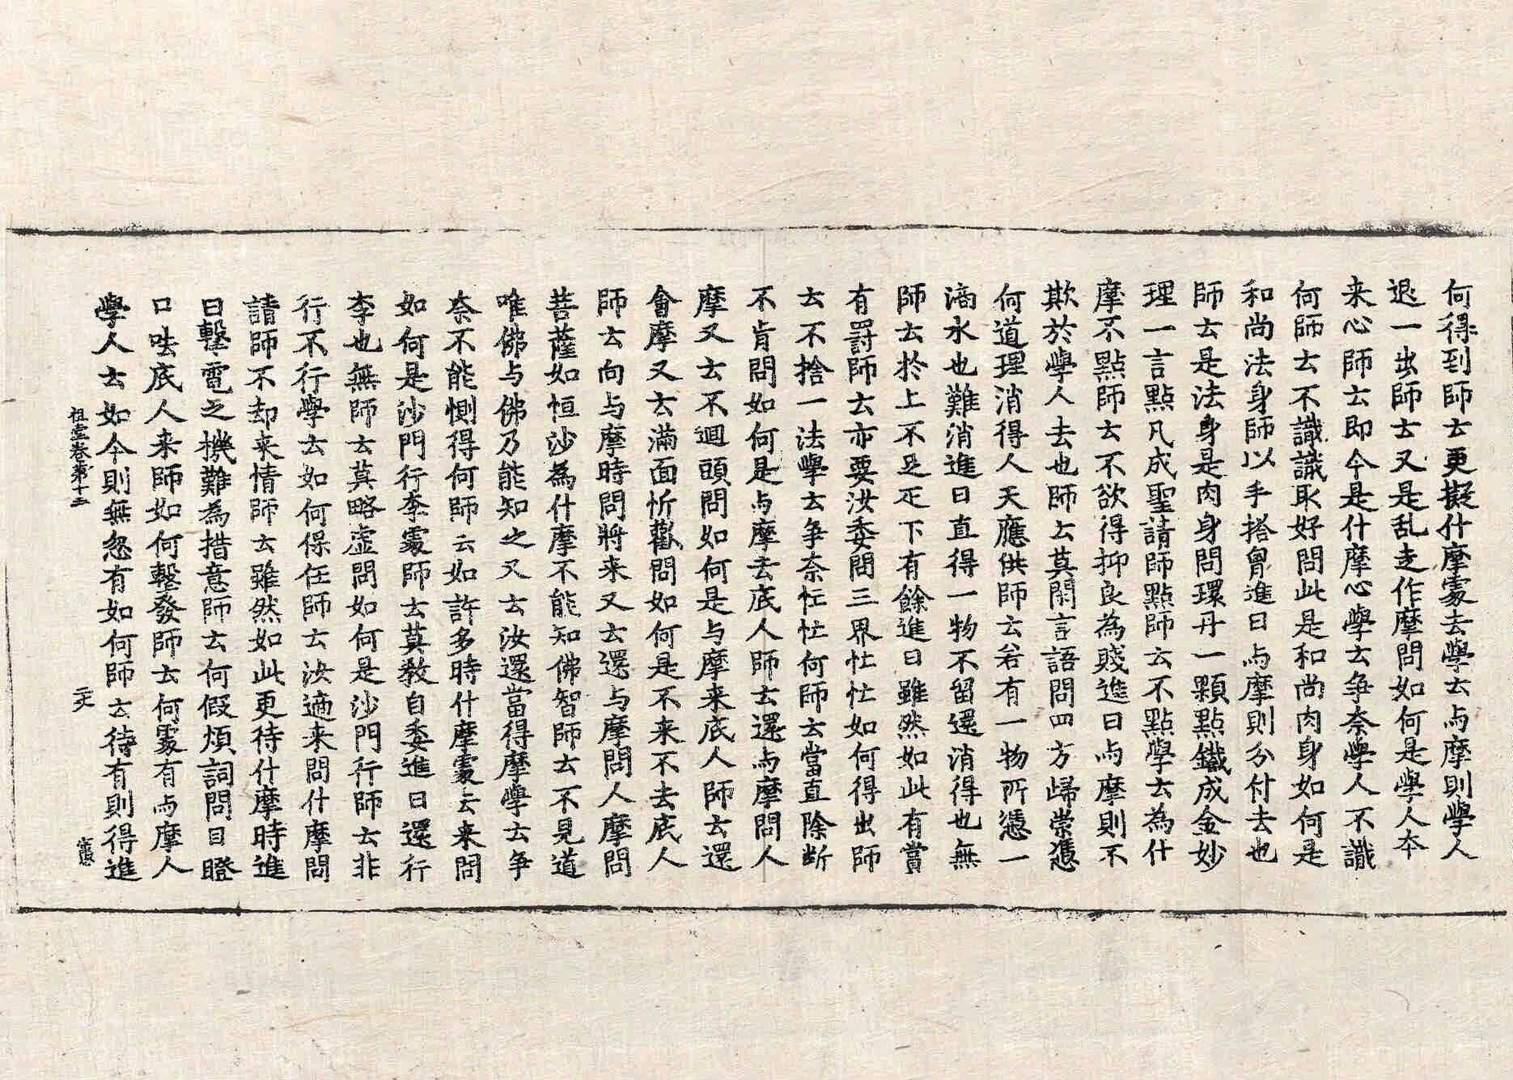 何得到師云更擬什摩處去學云与摩則學人
退一步師云又是乱走作摩問如何是學人本
来心師云即今是什摩心學云争奈學人不識
何師云不識識取好問此是和尚肉身如何是
和尚法身師以手搭胷進曰与摩則分付去也
師云是法身是肉身問環丹一顆點鐵成金妙
理一言點凡成聖請師點師云不點學云為什
摩不點師云不欲得抑良為賤進曰与摩則不
欺於學人去也師云莫閑言語問四方歸崇憑
何道理消得人天應供師云若有一物所憑一
滴水也難消進曰直得一物不留還消得也無
師云於上不足疋下有餘進曰雖然如此有賞
有罸師云亦要汝委問三界忙忙如何得出師
云不捨一法學云争奈忙忙何師云當直除断
不肯問如何是与摩去底人師云還与摩問人
摩又云不迴頭問如何是与摩来底人師云還
會摩又云滿面忻歡問如何是不来不去底人
師云向与摩時問將来又云還与摩問人摩問
菩薩如恒沙為什摩不能知佛智師云不見道
唯佛与佛乃能知之又云汝還當得摩學云争
奈不能惻得何師云如許多時什摩處去来問
如何是沙門行李處師云莫教自委進曰還行
李也無師云莫略虚問如何是沙門行師云非
行不行學云如何保任師云汝適来問什摩問
請師不却来情師云雖然如此更待什摩時進
曰擊電之機難為措意師云何假煩詞問目瞪
口呿底人来師如何擊發師云何處有与摩人
學人云如今則無忽有如何師云待有則得進
祖堂卷第十三